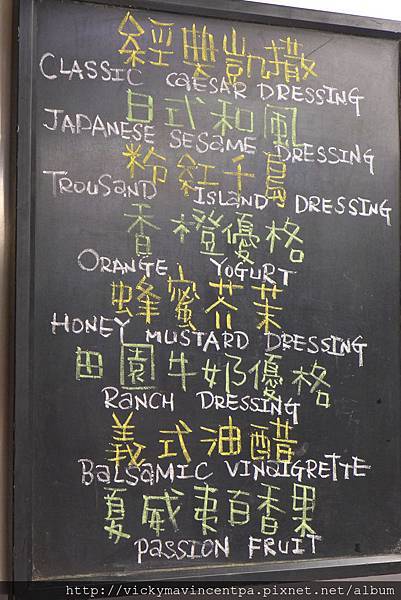 經典凱撒
CLASSIC CAESAR DRESSING
日式和風
JAPANESE SESAME DRESSING
粉紅千島
TROUSAND ISLAND DRESSING
香橙優格
ORANGE YOGURT
蜂蜜芥茉
HONEY MUSTARD DRESSING
田園牛奶優格
RANCH DRESSING
義式油醋
BALSAMIC VINAIGRETTE
夏威夷百香果
PASSION FRUIT
http://vickymavincentpa.pixnet.net/album